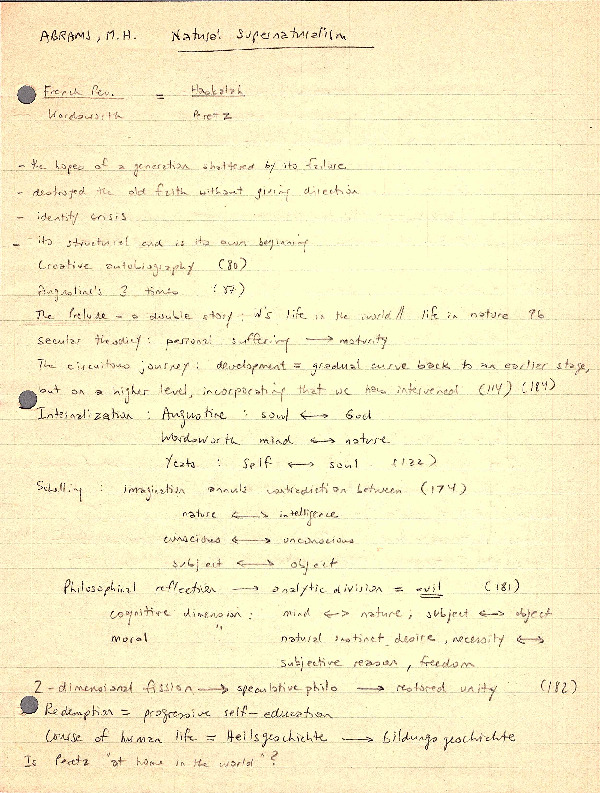 ABRAMS, M.H. Natural Supernaturalism
French Rev. = Haskalah
Wordsworth Peretz
- the hopes of a generation shattered by its failure
- destroyed the old faith without giving direction
- identity crisis
- its structural end is its own beginning
Creative autobiography (80)
Augustine's 3 times (87)
The Prelude - a double story: W's life in the world // life in nature 96
secular theodicy: personal suffering → maturity
The circuitous journey: development = gradual curve back to an earlier stage,
but on a higher level, incorporating that we have intervened (114) (184)
Internalization: Augustine: soul ↔ God
Wordsworth mind ↔ nature
Yeats: Self ↔ soul (122)
Schelling: imagination annuls contradiction between (174)
nature ↔ intelligence
conscious ↔ unconscious
subject ↔ object
Philosophical reflection → analytic division = evil (181)
cognitive dimension: mind ↔ nature; subject ↔ object
moral " natural instinct, desire, necessity ↔
subjective reason, freedom
2-dimensional fission → speculative philo → restored unity (182)
Redemption = progressive self-education
Course of human life = Heilsgeschichte → Bildungsgeschichte
Is Peretz "at home in the world"?